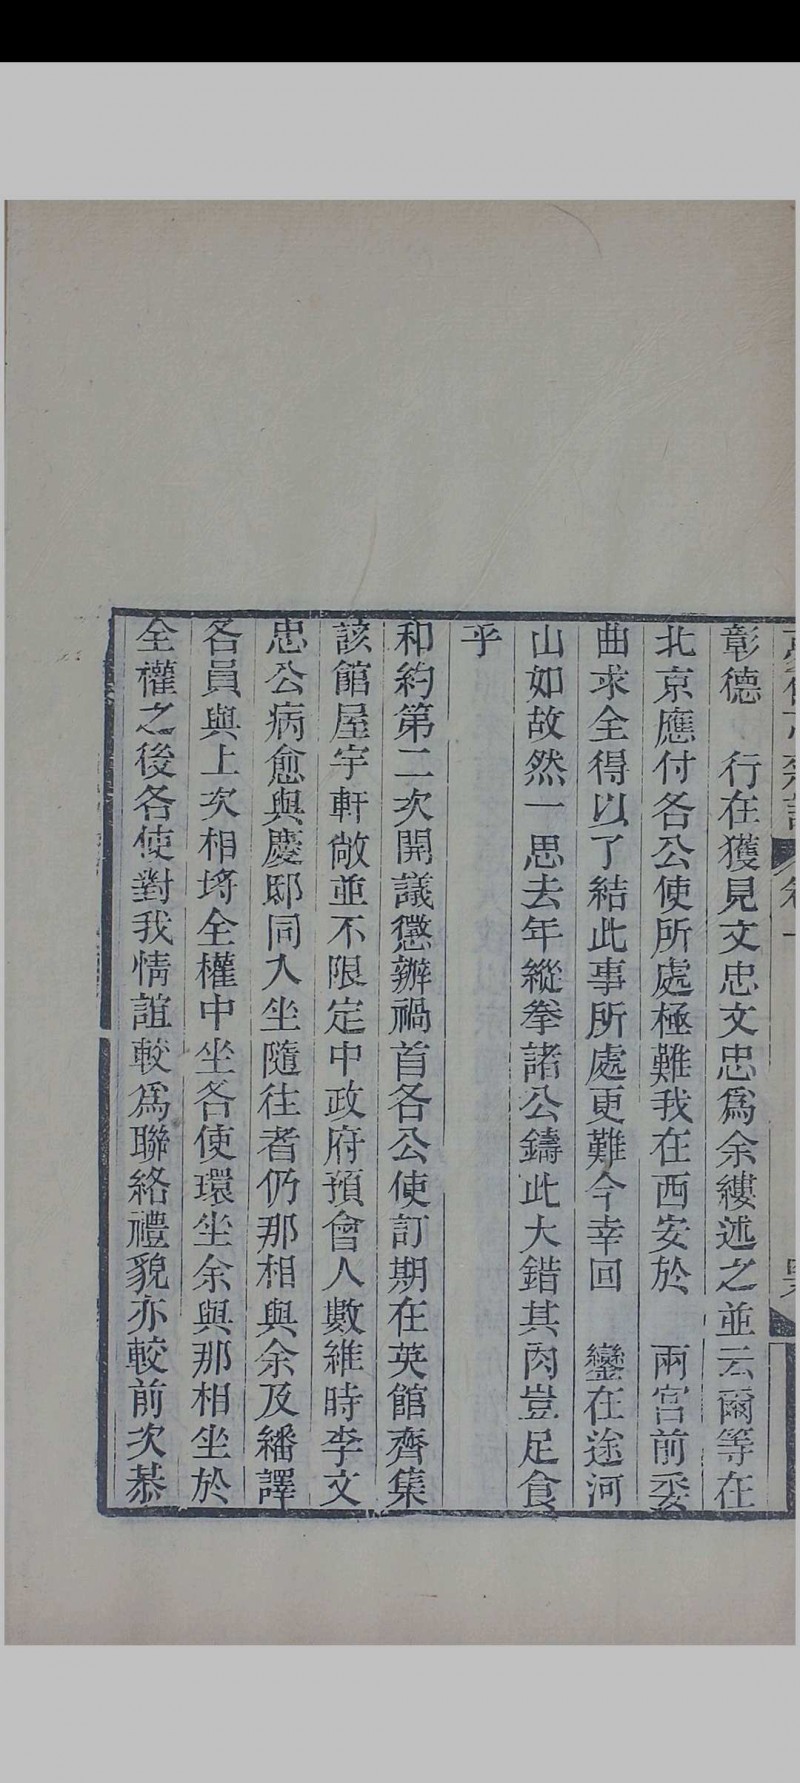 彰德　行在獲見文忠文忠爲余縷述之並云爾等在
北京應付各公使所處極難我在西安於　兩宮前委
曲求全得以了結此事所處更難今幸回　鑾在途河
山如故然一思去年縱拳諸公鑄此大錯其肉豈足食
乎
和約第二次開議懲辦禍首各公使訂期在英館齊集
該館屋宇軒敞並不限定中政府預會人數維時李文
忠公病愈與慶邸同入坐隨往者仍那相與余及繙譯
各員與上次相埒全權中坐各使環坐余與那相坐於
全權之後各使對我情誼較爲聯絡禮貌亦較前次恭